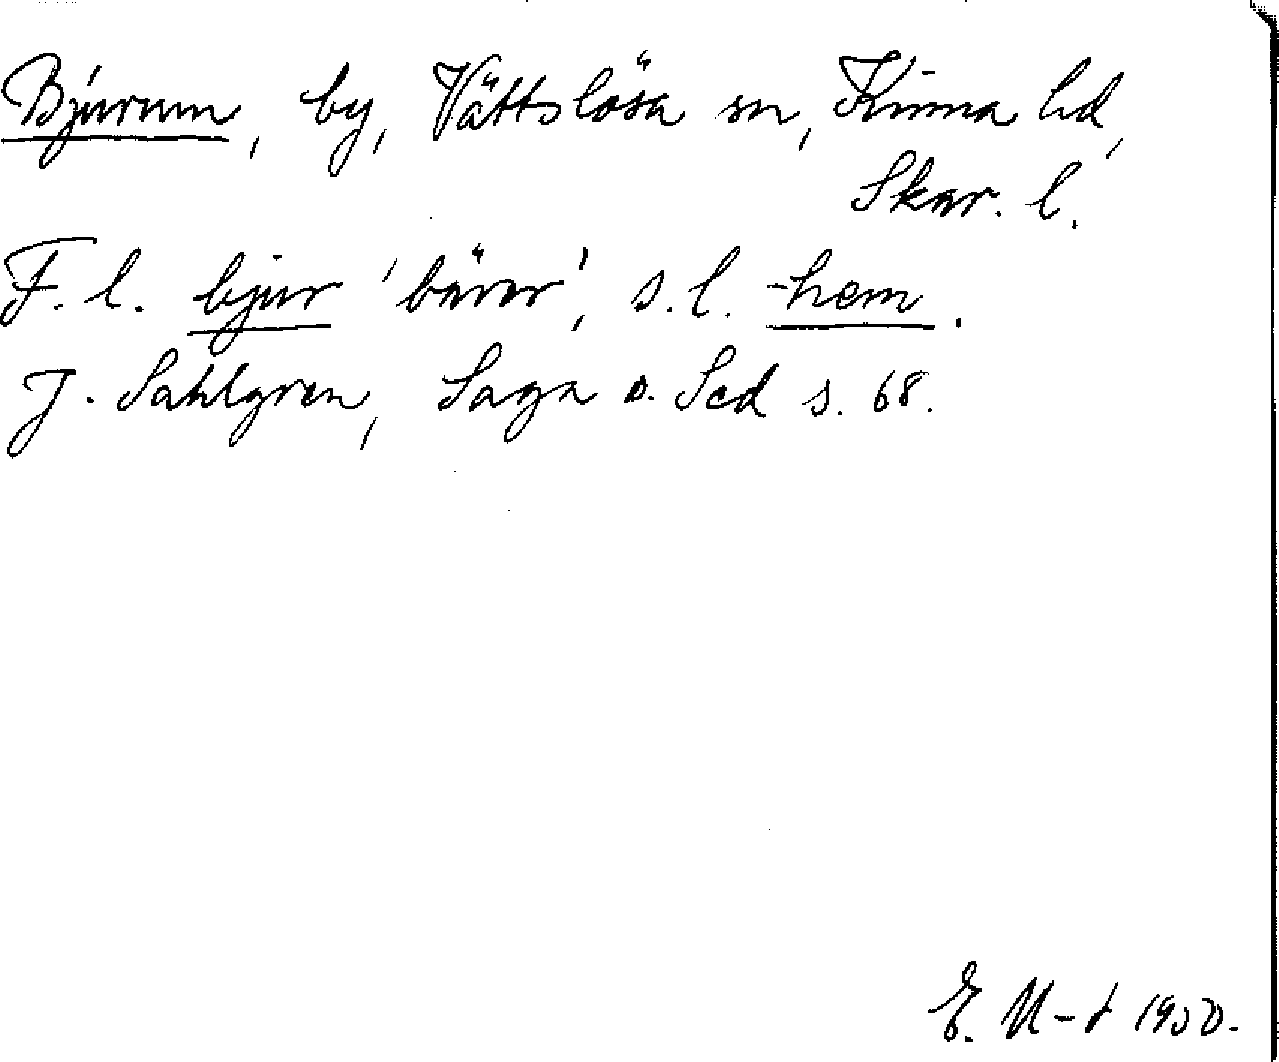 Bjurum, by, Vättslösa sn, Kinna hd,
Skar. l.
F. l. bjur 'bäver', s. l. -hem.
J. Sahlgren, Saga o. Sed s. 68.
E. M-t 1950.